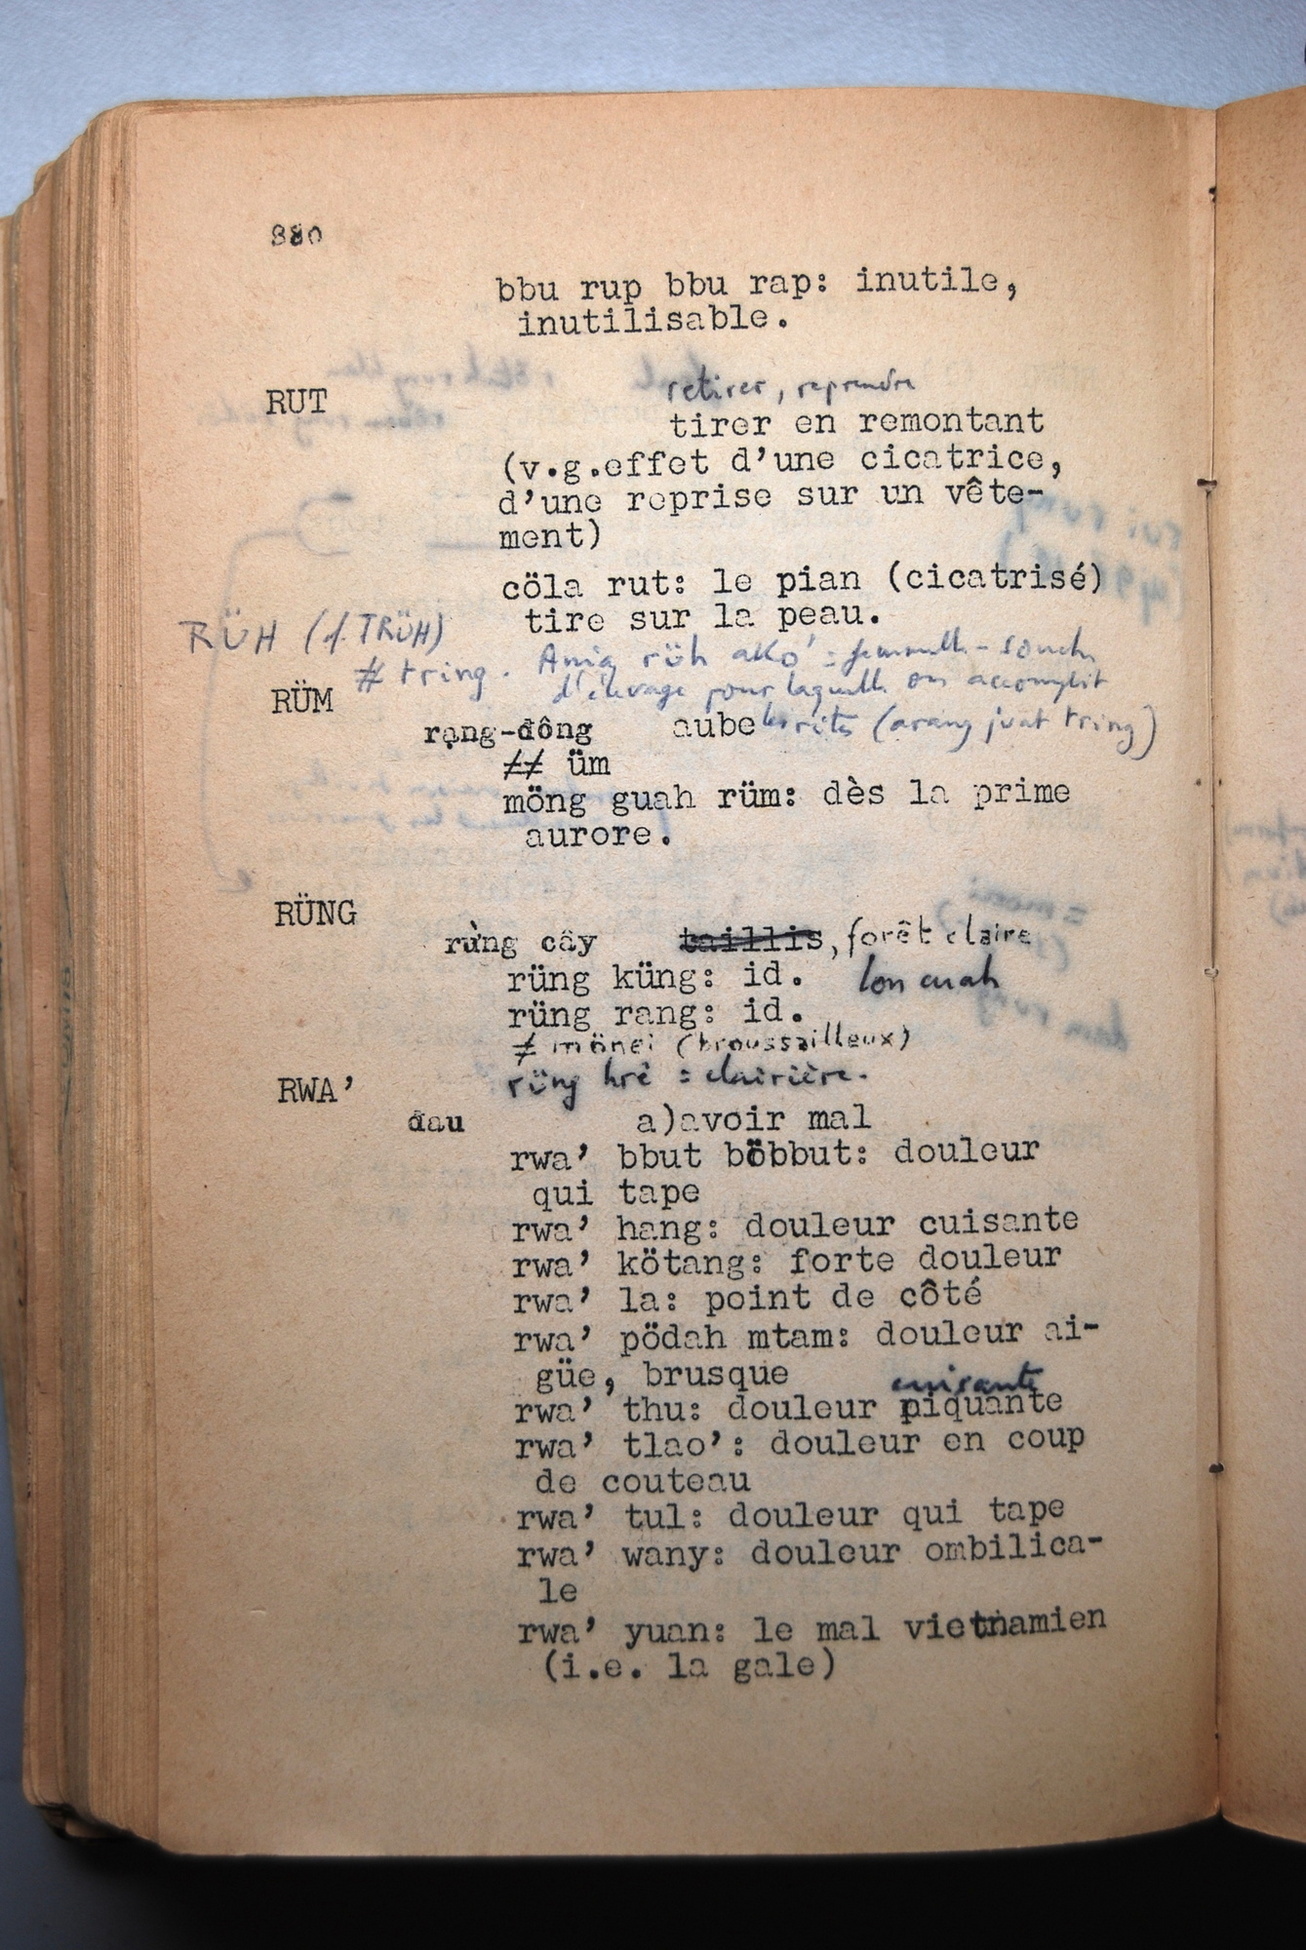 380
bbu rup bbu rap: inutile,
inutilisable.
retirer, reprendre
RUT
tirer en remontant
(v.g.effet d'une cicatrice,
d'une reprise sur un vête-
ment)
cöla rut: le pian (cicatrisé)
tire sur la peau.
RÜH (cf. TRÜH)
# tring. Amia rüh ako' = femelle-souche
d'élevage pour laquelle on accomplit
RÜM
rạng-đông aube les rites (arang juat tring)
≠≠ üm
möng guah rüm: dès la prime
aurore.
RÜNG
rừng cây taillis, forêt claire
rüng küng: id. lon cuah
rüng rang: id.
≠ mönei (broussailleux)
rüng hrê = clairière.
RWA'
đau a)avoir mal
rwa' bbut böbbut: douleur
qui tape
rwa' hang: douleur cuisante
rwa' kötang: forte douleur
rwa' la: point de côté
rwa' pödah mtam: douleur ai-
güe, brusque
cuisante
rwa' thu: douleur piquante
rwa' tlao': douleur en coup
de couteau
rwa' tul: douleur qui tape
rwa' wany: douleur ombilica-
le
rwa' yuan: le mal vietnamien
(i.e. la gale)